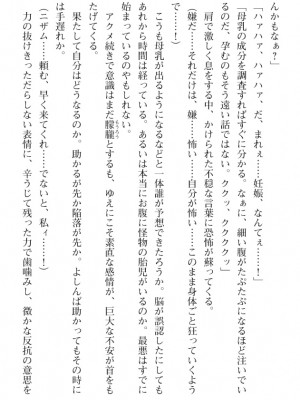 んかもなぁ?」
「ハァハァ、ハァハァ、だ、まれぇ……妊娠、なんてぇ……!」
「母乳の成分を調査すればすぐに分かる。なぁに、細い腹がたぷたぷになるほど注いでい
るのだ、孕むのもそう遠い話ではない。ククッ、クククククッ」
肩で激しく息をする中、かけられた不穏な言葉に恐怖が蘇ってくる。
(嫌だ……それだけは、嫌……怖い……自分が怖い……このまま身体ごと狂っていくよう
で……!)
こうも母乳が出るようになるなどと一体誰が予想できたろうか。脳が誤認したにしても
あれから時間は経っている。あるいは本当にお腹に怪物の胎児がいるのか。最悪はすでに
始まっているのやもしれない。
アクメ続きで意識はまだ朦朧とするも、ゆえにこそ素直な感情が、巨大な不安が首をも
たげてくる。
果たして自分はどうなるのか。助かるが先か陥落が先か。よしんば助かってもその時に
は手遅れか。
(ニザム……頼む、早く来てくれ……でないと、私ィ……!)
力の抜けきっただらしない表情に、辛うじて残った力で歯噛みし、微かな反抗の意思を